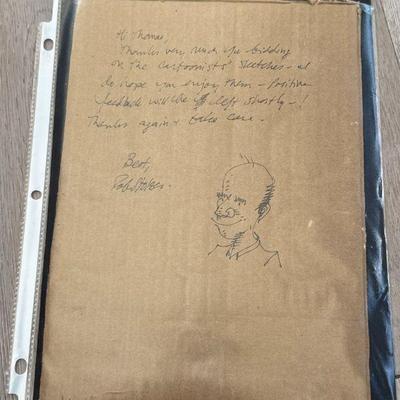 Hi Thomas,
Thanks very much for bidding
on the Cartoonists' Sketches - I
do hope you enjoy them - Positive
feedback will be left shortly - !
Thanks again & take care.
Best,